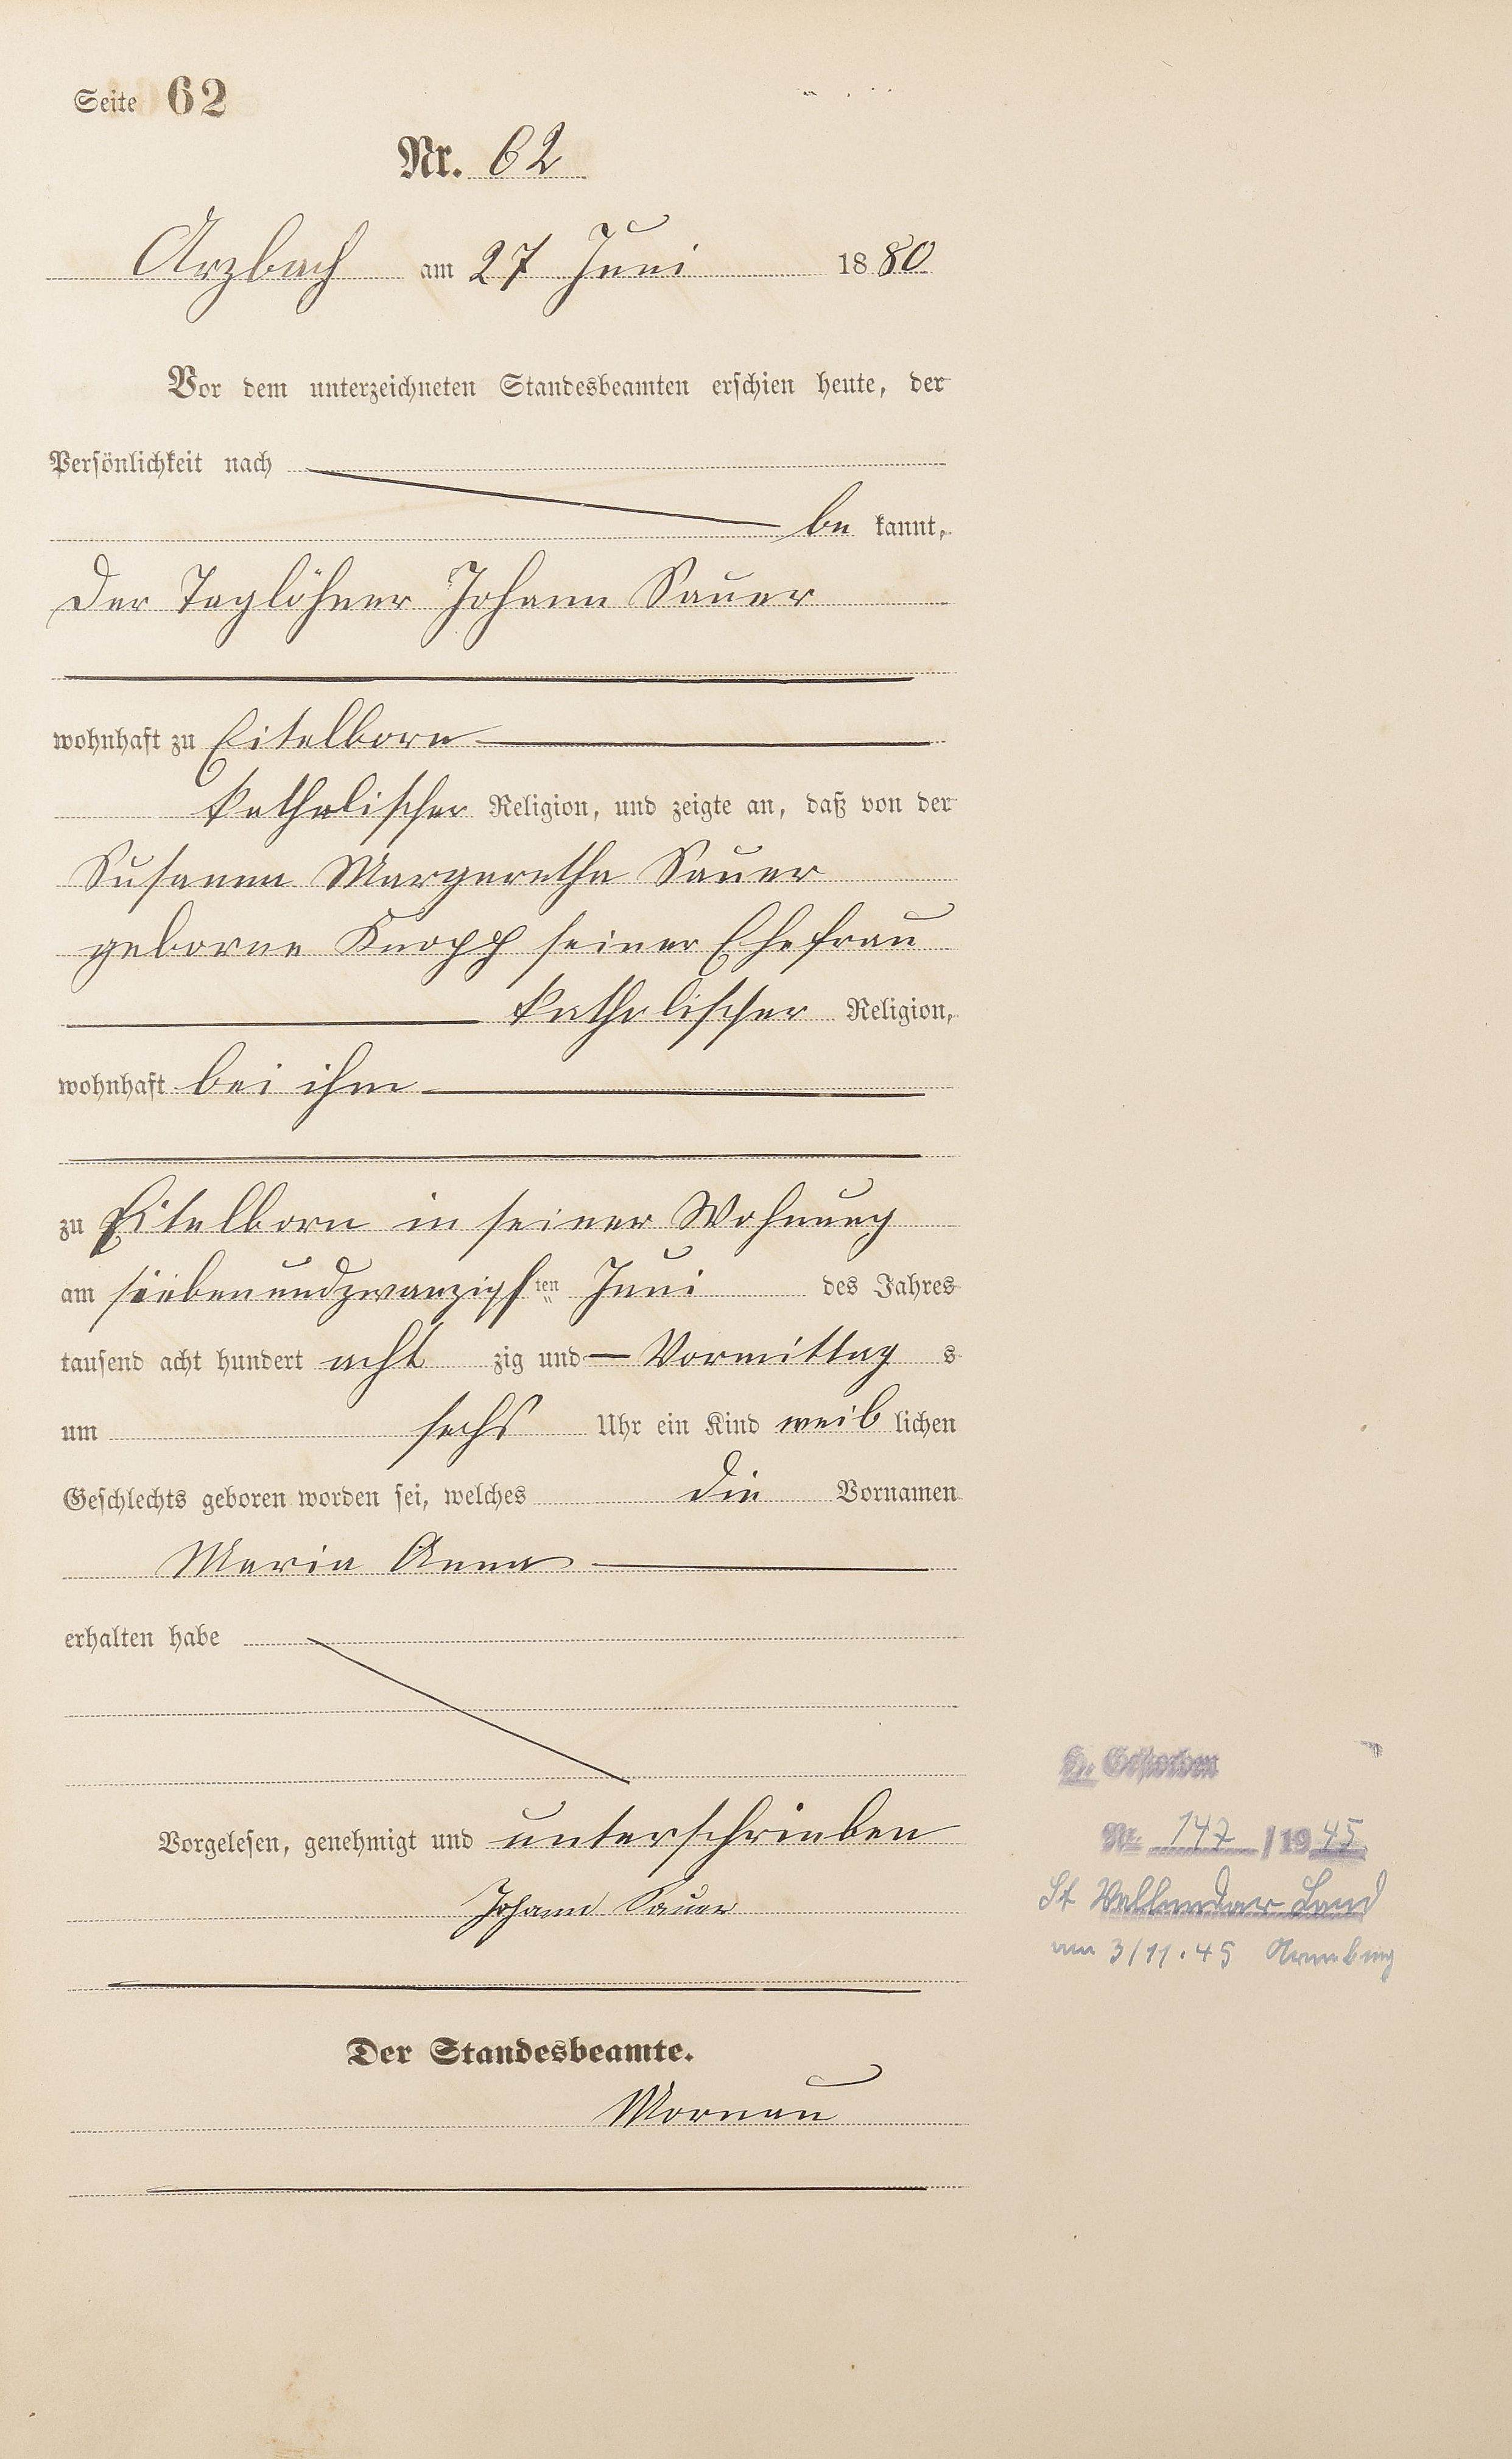 Seite 62
Nr. 62
Arzbach am 27 Juni 1880
Vor dem unterzeichneten Standesbeamten erschien heute, der
Persönlichkeit nach
be kannt,
der Taglöhner Johann Sauer
wohnhaft zu Eitelborn
katholischer Religion, und zeigte an, daß von der
Susanna Margaretha Sauer
geborne Knopp seiner Ehefrau
katholischer Religion,
wohnhaft bei ihm
zu Eitelborn in seiner Wohnung
am siebenundzwanzigsten Juni des Jahres
tausend acht hundert acht zig und Vormittag s
um sechs Uhr ein Kind weib lichen
Geschlechts geboren worden sei, welches die Vornamen
Maria Anna
erhalten habe
Vorgelesen, genehmigt und unterschrieben
Johann Sauer
Der Standesbeamte.
Mornau
H. Gestorben
Nr. 147/1945
St Vallendar Land
am 3/11.45